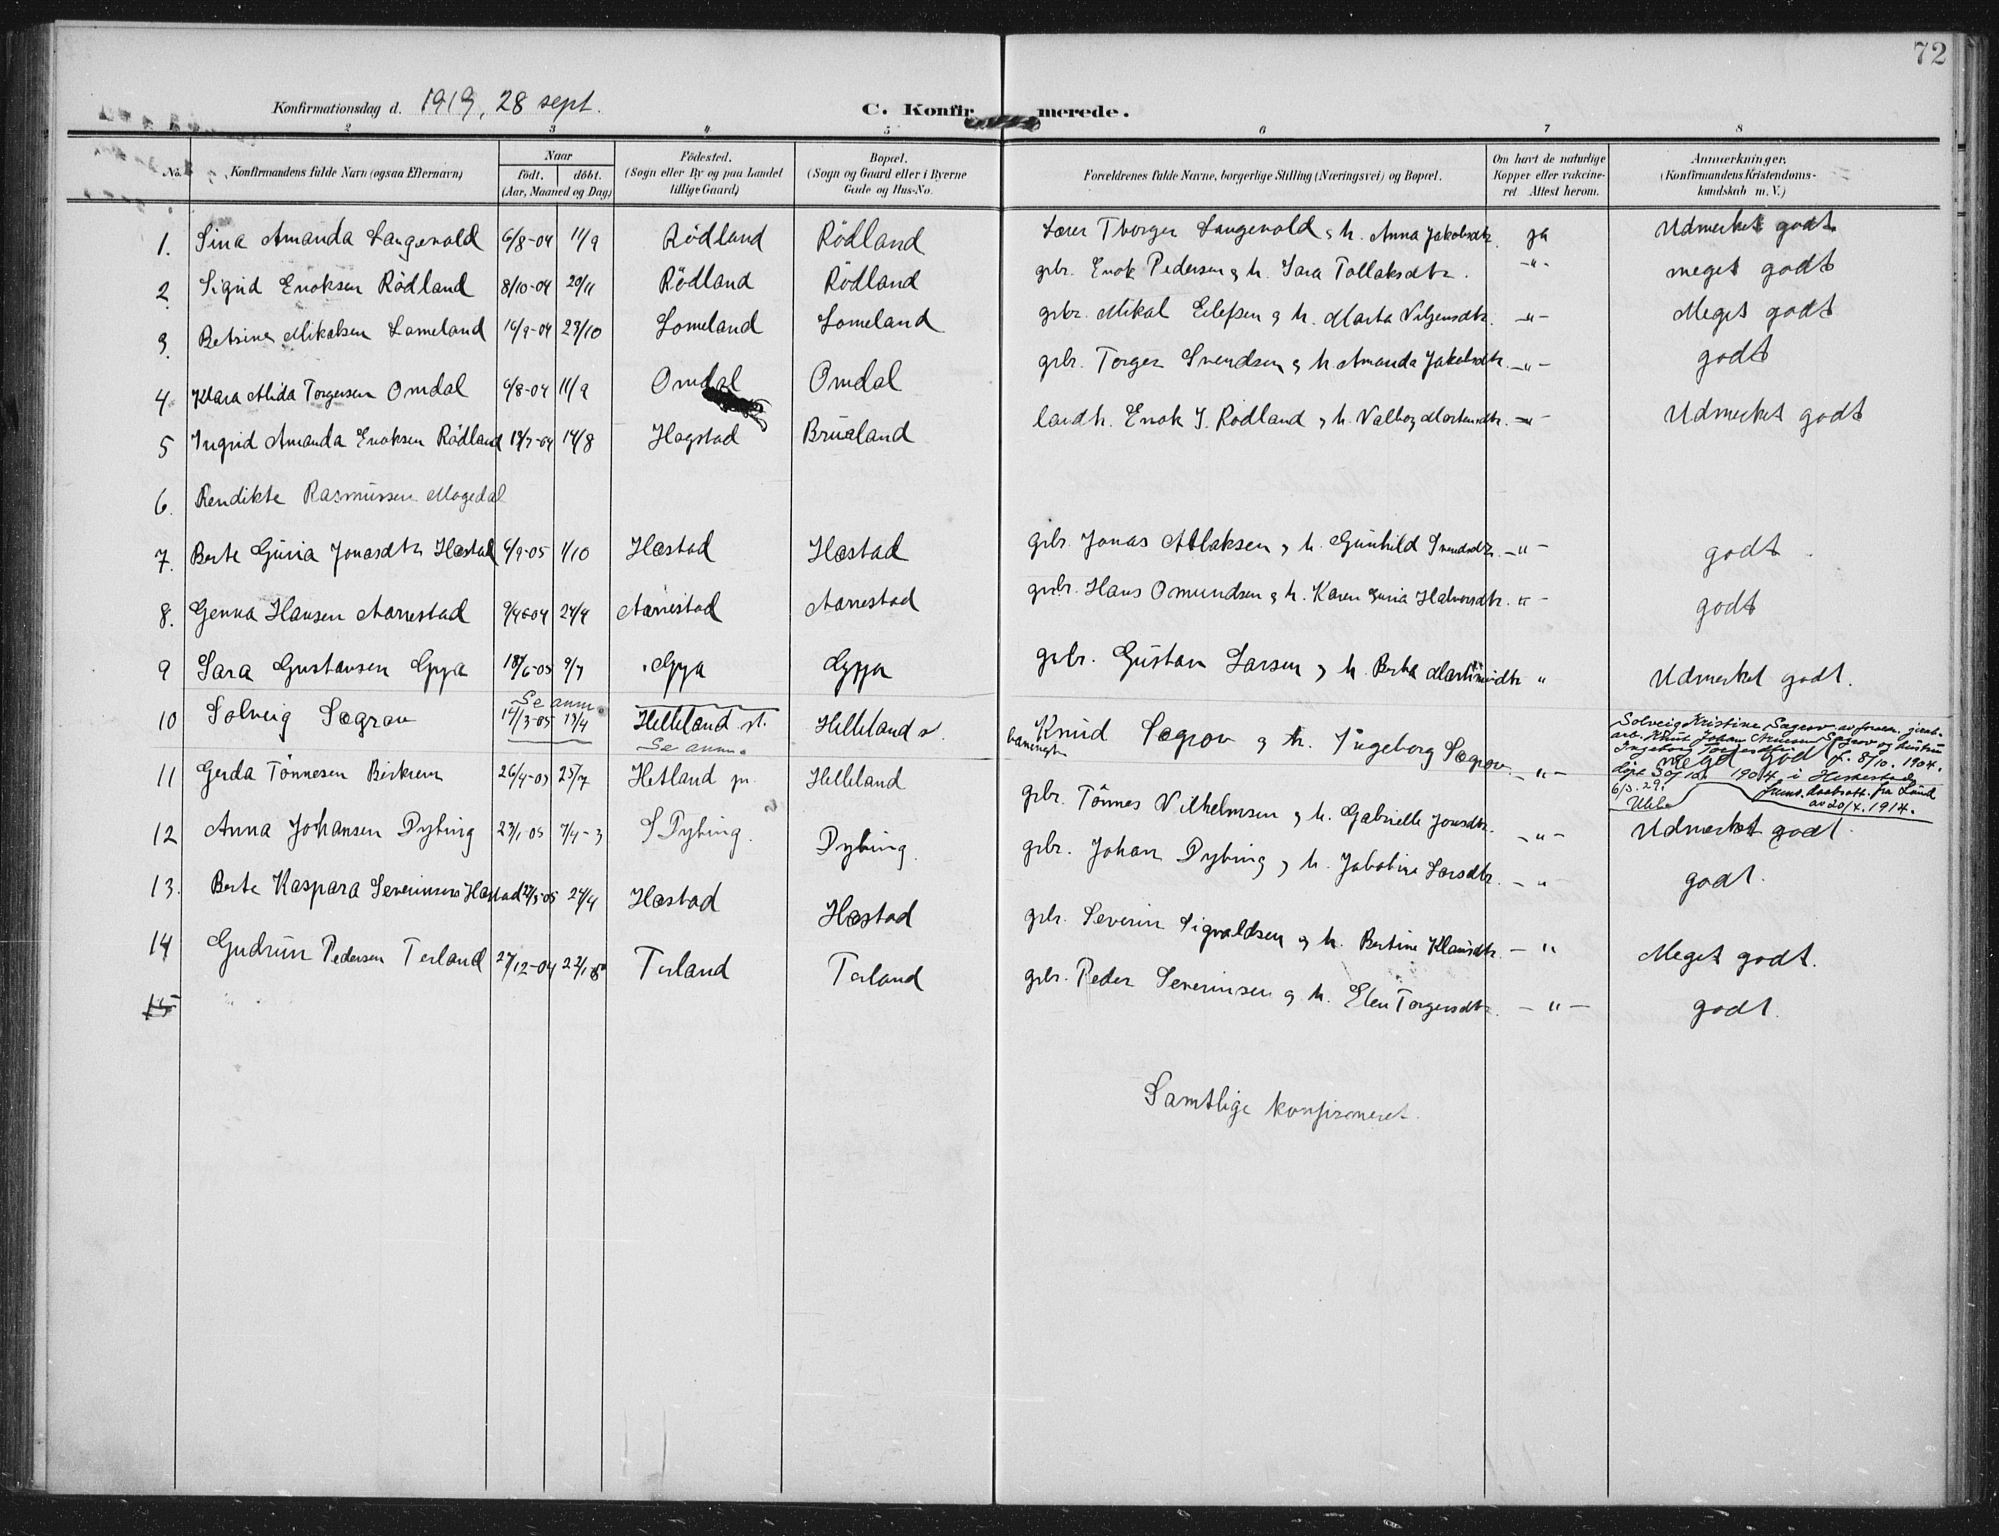 72
Konfirmationsdag d. 1919, 28 sept.
C. Konfirmerede.
2 3 4 5 6 7 8
No. Konfirmandens fulde Navn (ogsaa Efternavn)
Naar
födt. döbt.
(Aar, Maaned og Dag)
Födested.
(Sogn eller By og paa Landet
tillige Gaard)
Bopæl.
(Sogn og Gaard eller i Byerne
Gade og Hus-No.
Forældrenes fulde Navne, borgerlige Stilling (Næringsvei) og Bopæl.
Om havt de naturlige
Kopper eller vakcine-
ret Attest herom.
Anmerkninger.
(Konfirmandens Kristendoms-
kundskab m. V.)
1. Sina Amanda Langevold 6/8-04 11/9 Rödland Rödland Lærer Thorger Langevold & h. Anna Jakobsdtr. ja Udmerket godt
2. Sigrid Enoksen Rödland 8/10-04 20/11 Rödland Rödland grbr. Enok Pedersen & h. Sara Tollaksdtr. -"- meget godt
3. Betsine Mikalsen Lomeland 16/9-04 23/10 Lomeland Lomeland grbr. Mikal Eilefsen & h. Marta Nilsensdtr. -"- Meget godt
4. Klara Alida Torgersen Omdal 6/8-04 11/9 Omdal Omdal grbr. Torger Svendsen & h Amanda Jakobsdtr. -"- godt
5 Ingrid Amanda Enoksen Rödland 13/7-04 14/8 Hagstad Brualand landh. Enok J. Rödland & h. Valborg Martensdtr. -"- Udmerket godt
6. Rendikte Rasmussen Mogedal
7. Berte Guria Jonasdtr Hæstad 6/9-05 1/10 Hæstad Hæstad grbr. Jonas Atlaksen & h. Gunhild Svendsdtr. -"- godt
8. Genna Hansen Aarrestad 9/4-04 24/4 Aarrestad Aarrestad grbr. Hans Omundsen & h. Karen Guria Halvorsdtr. "- godt
9 Sara Gustavsen Gya 18/6-05 9/7 Gya Gya grbr. Gustav Larsen & h. Berta Martinusdtr " Udmerket godt.
Se anm.
10 Solveig Sægrov 14/3-05 13/4 Helleland st. Helleland s. Knud Sægrov & h. Ingeborg Sægrov -"-
banevogt
Se anm.
Solveig Kristine Sægrov av foræn. jernb.
arb. Knut Johan Sægrov og hustru
Ingeborg f. 8/10. 1904.
meget godt
döpt 30/10 1904 i Heskestad
6/3. 29. fra Lund
av 20/4. 1914.
11 Gerda Tönnesen Birkrem 26/4-05 25/7 Hetland pr. Helleland grbr. Tönnes Vilhelmsen & h. Gabrielle Jonsdtr. -"- Udmerket godt.
12 Anna Johansen Dybing 23/1-05 7/4-3 S Dybing. Dybing. grbr. Johan Dybing & h. Jakobine Larsdtr. -" godt.
13. Berte Kaspara Severinsens Hæstad 27/3-05 24/4 Hæstad Hæstad grbr. Severin Sigvaldsen & h. Bertine Klausdtr. -" Meget godt.
14 Gudrun Pedersen Terland 27/12-04 22/1-05 Terland Terland grbr. Peder Severinsen & h. Elen Torgersdtr. -"- godt.
15
Samtlige konfirmeret.